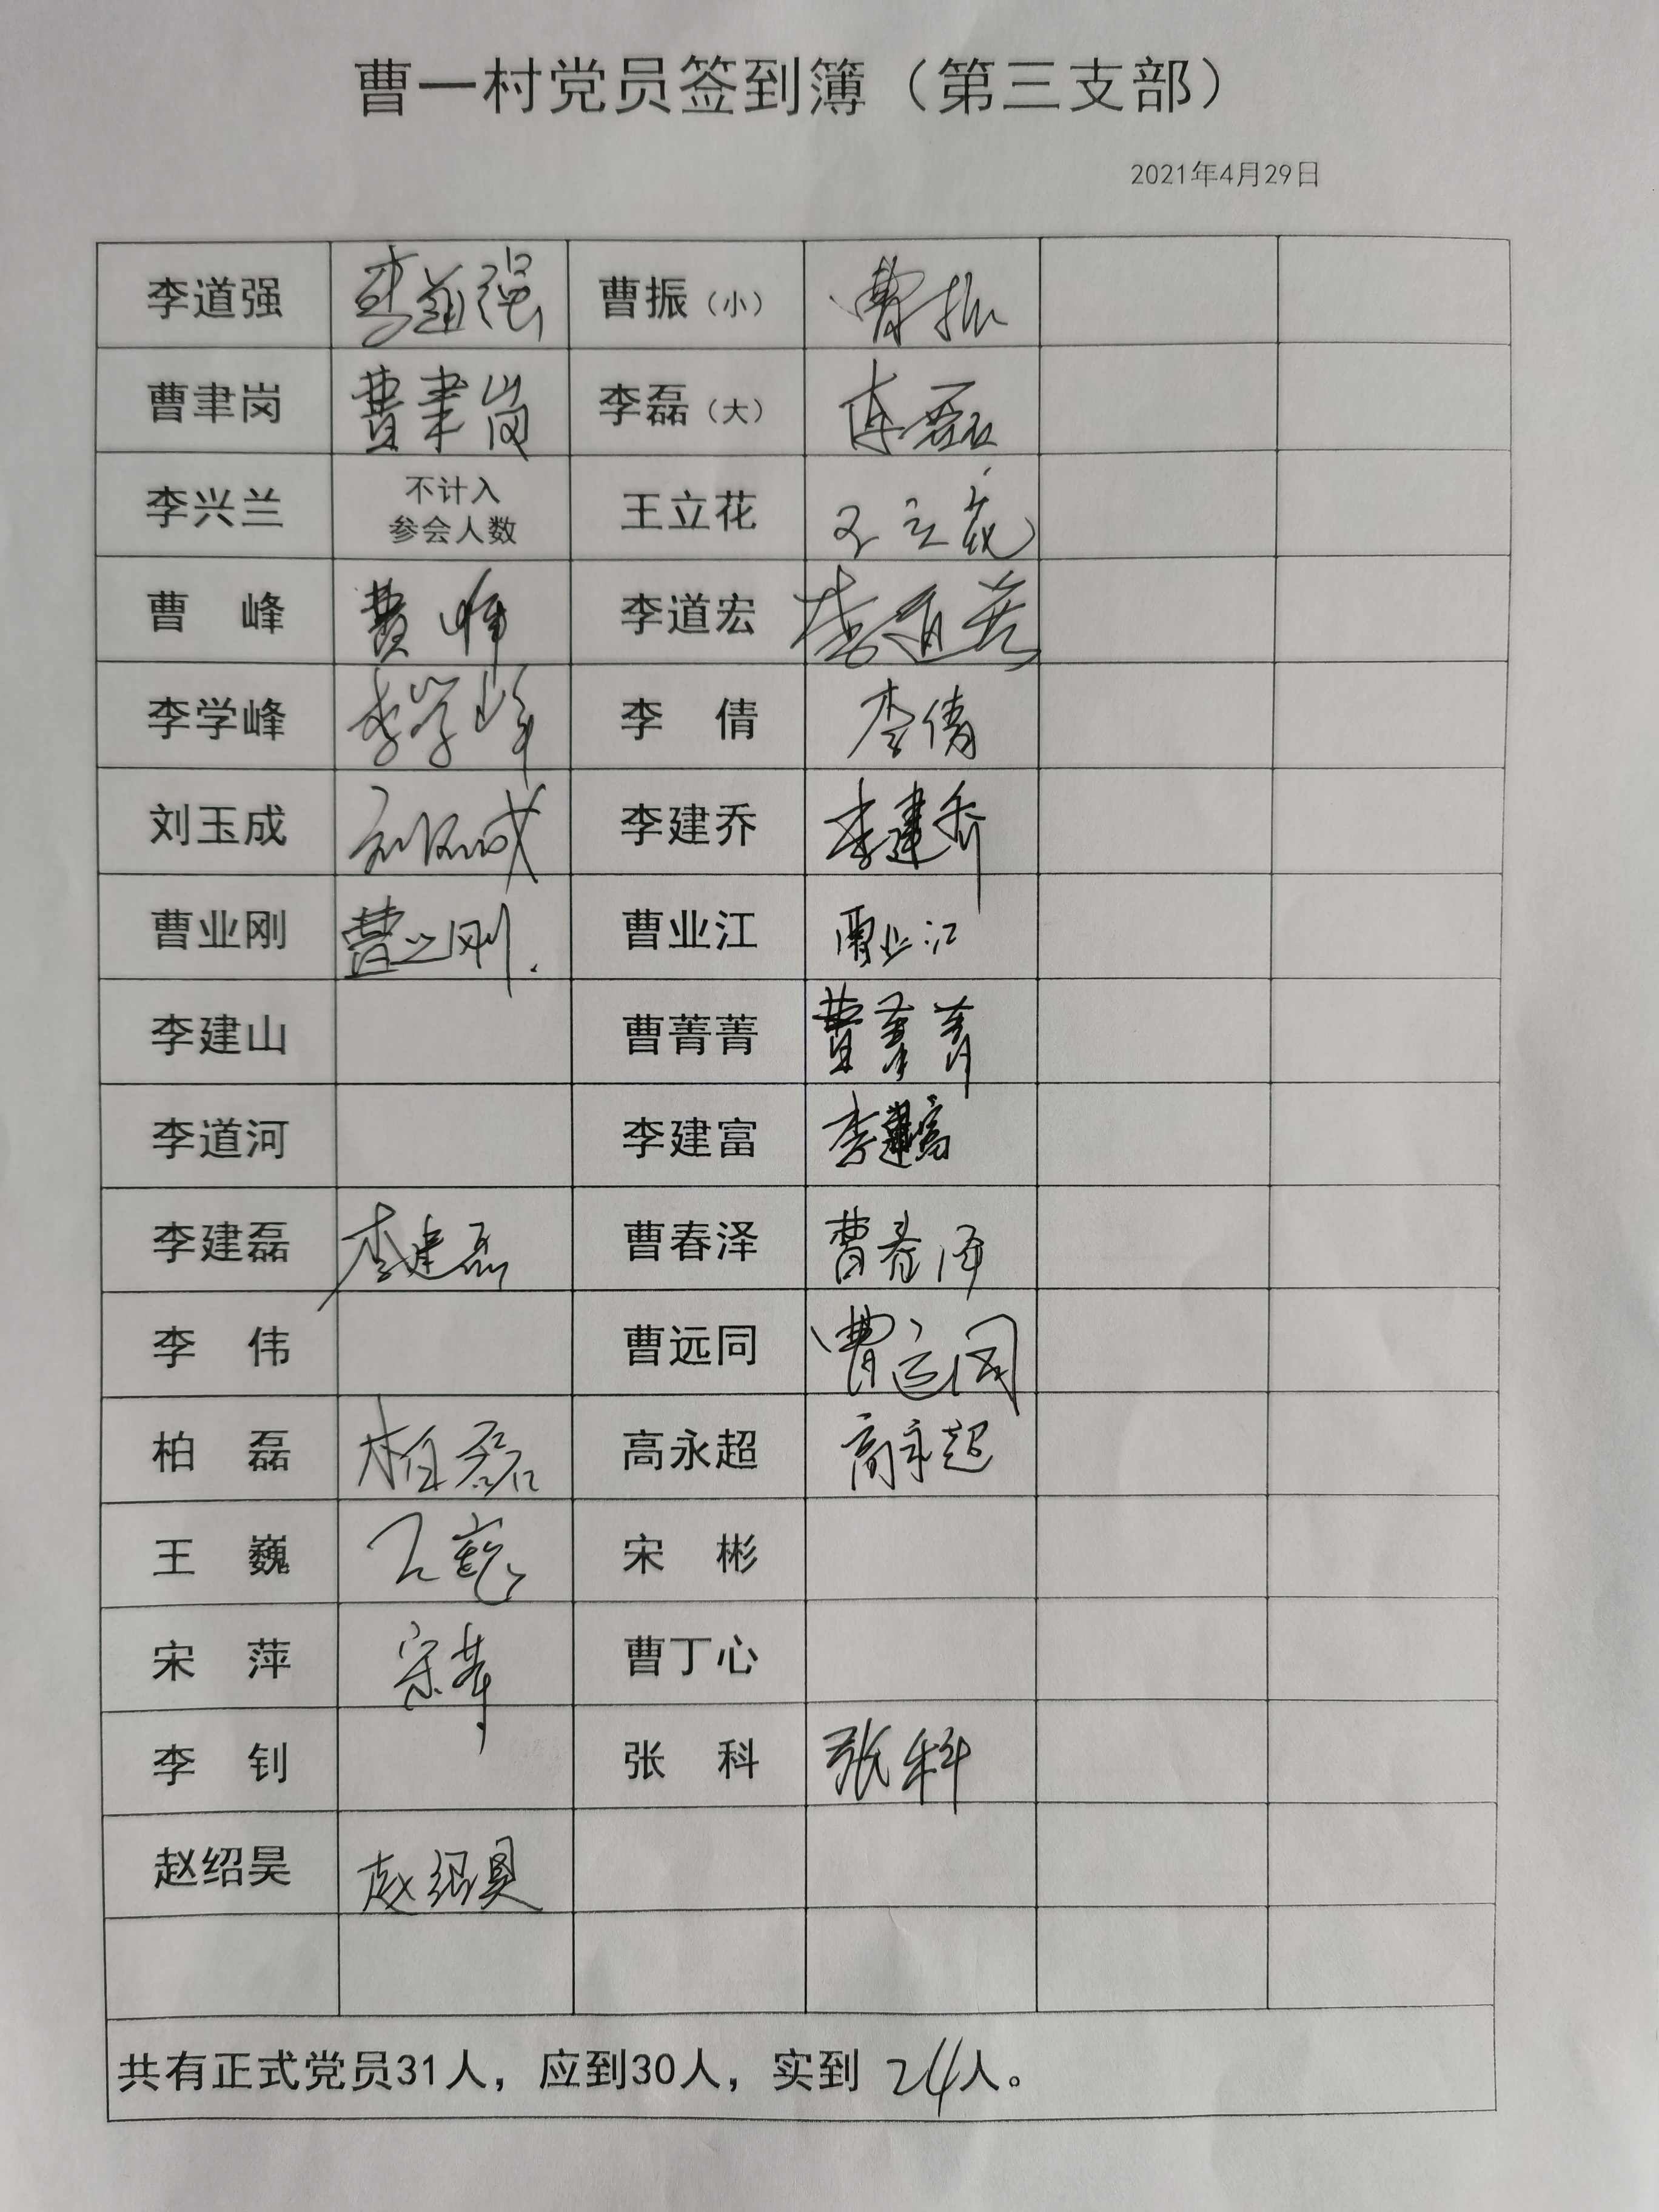 曹一村党员签到簿（第三支部）
2021年4月29日
李道强 李道强 曹振（小） 曹振
曹聿岗 曹聿岗 李磊（大） 李磊
李兴兰 不计入 王立花 王立花
参会人数
曹 峰 曹峰 李道宏 李道宏
李学峰 李学峰 李 倩 李倩
刘玉成 刘玉成 李建乔 李建乔
曹业刚 曹业刚. 曹业江 曹业江
李建山 曹菁菁 曹菁菁
李道河 李建富 李建富
李建磊 李建磊 曹春泽 曹春泽
李 伟 曹远同 曹远同
柏 磊 柏磊 高永超 高永超
王 巍 王巍 宋 彬
宋 萍 宋萍 曹丁心
李 钊 张 科 张科
赵绍昊 赵绍昊
共有正式党员31人，应到30人，实到 24人。